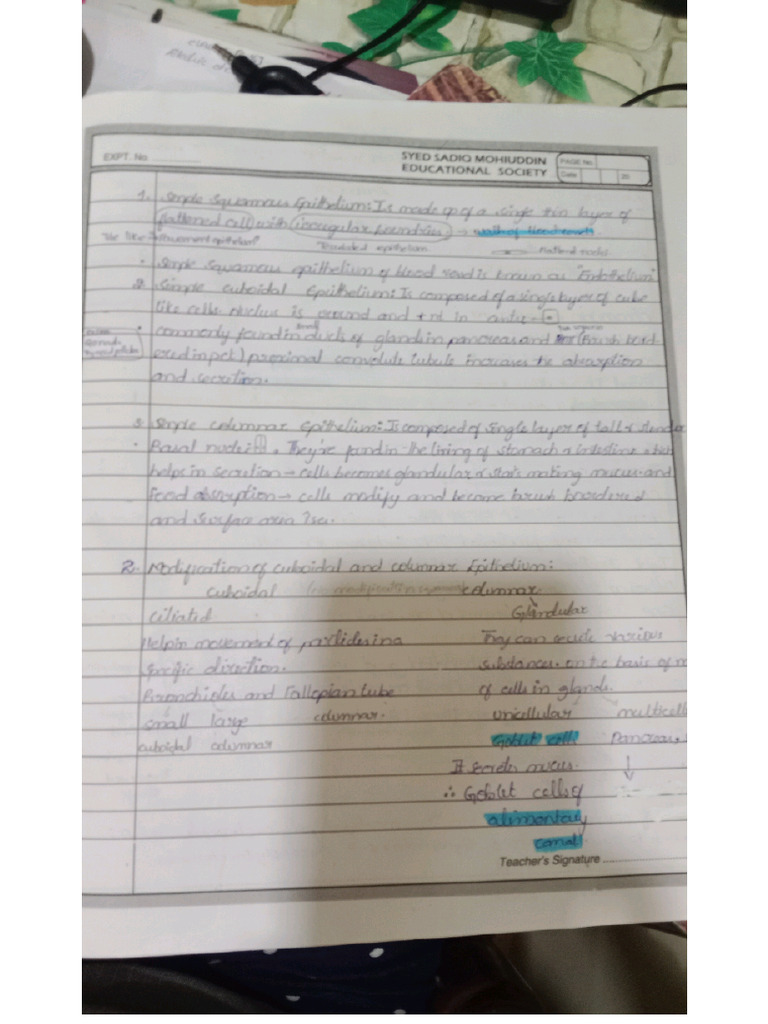 EXPT. No.
SYED SADIQ MOHIUDDIN
EDUCATIONAL SOCIETY
PAGE No.
Date 20
1. Simple Squamous Epithelium: Is made up of a single thin layer of
flattened cell with irregular boundries → walls of blood
Tile like epithelium
epithelium
• Simple Squamous epithelium of blood is known as "Endothelium"
2. Simple cuboidal Epithelium: Is composed of a single layer of cube
like cells. nucleus is round and in
• commonly found in ducts of glands in pancreas and (Brush bord
ered in pct) proximal convolute tubule increases the absorption
and secretion.
3. Simple columnar Epithelium: Is composed of single layer of tall & slender
• Basal nuclei. They're found in the lining of stomach & intestine which
helps in secretion → cells becomes glandular & starts making mucus and
food absorption → cells modify and become brush bordered
and surface area
2. Modification of cuboidal and columnar Epithelium:
cuboidal columnar
ciliated Glandular
Help in movement of particles in a
specific direction.
Bronchioles and Fallopian tube
small large columnar.
cuboidal columnar
They can secrete various
substances. on the basis of
of cells in glands.
unicellular
Goblet cells Pancreas,
It secretes mucus.
∴ Goblet cells of
alimentary
canal
Teacher's Signature